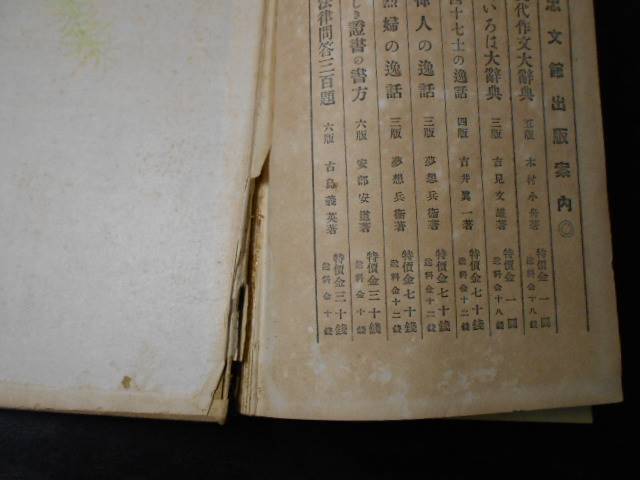 忠文館出版案内◎
代作文大辭典 五版 木村小舟著 特價金一圓 送料金十八錢
いろは大辭典 三版 吉見文雄著 特價金一圓 送料金十八錢
四十七士の逸話 四版 吉井異一著 特價金七十錢 送料金十二錢
偉人の逸話 三版 夢想兵衞著 特價金七十錢 送料金十二錢
烈婦の逸話 三版 夢想兵衞著 特價金七十錢 送料金十二錢
しき證書の書方 六版 安部安道著 特價金三十錢 送料金十錢
法律問答三百題 六版 古島義英著 特價金三十錢 送料金十錢